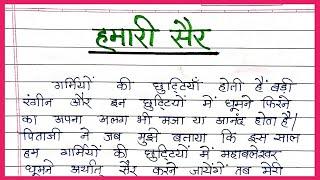 हमारी सैर
गर्मियों की छुट्टियाँ होती हैं बड़ी
रंगीन और इन छुट्टियों में घूमने फिरने
का अपना अलग भी मजा या आनंद होता है।
पिताजी ने जब मुझे बताया कि इस साल
हम गर्मियों की छुट्टियों में महाबलेश्वर
घूमने अर्थात् सैर करने जायेंगे तब मेरी